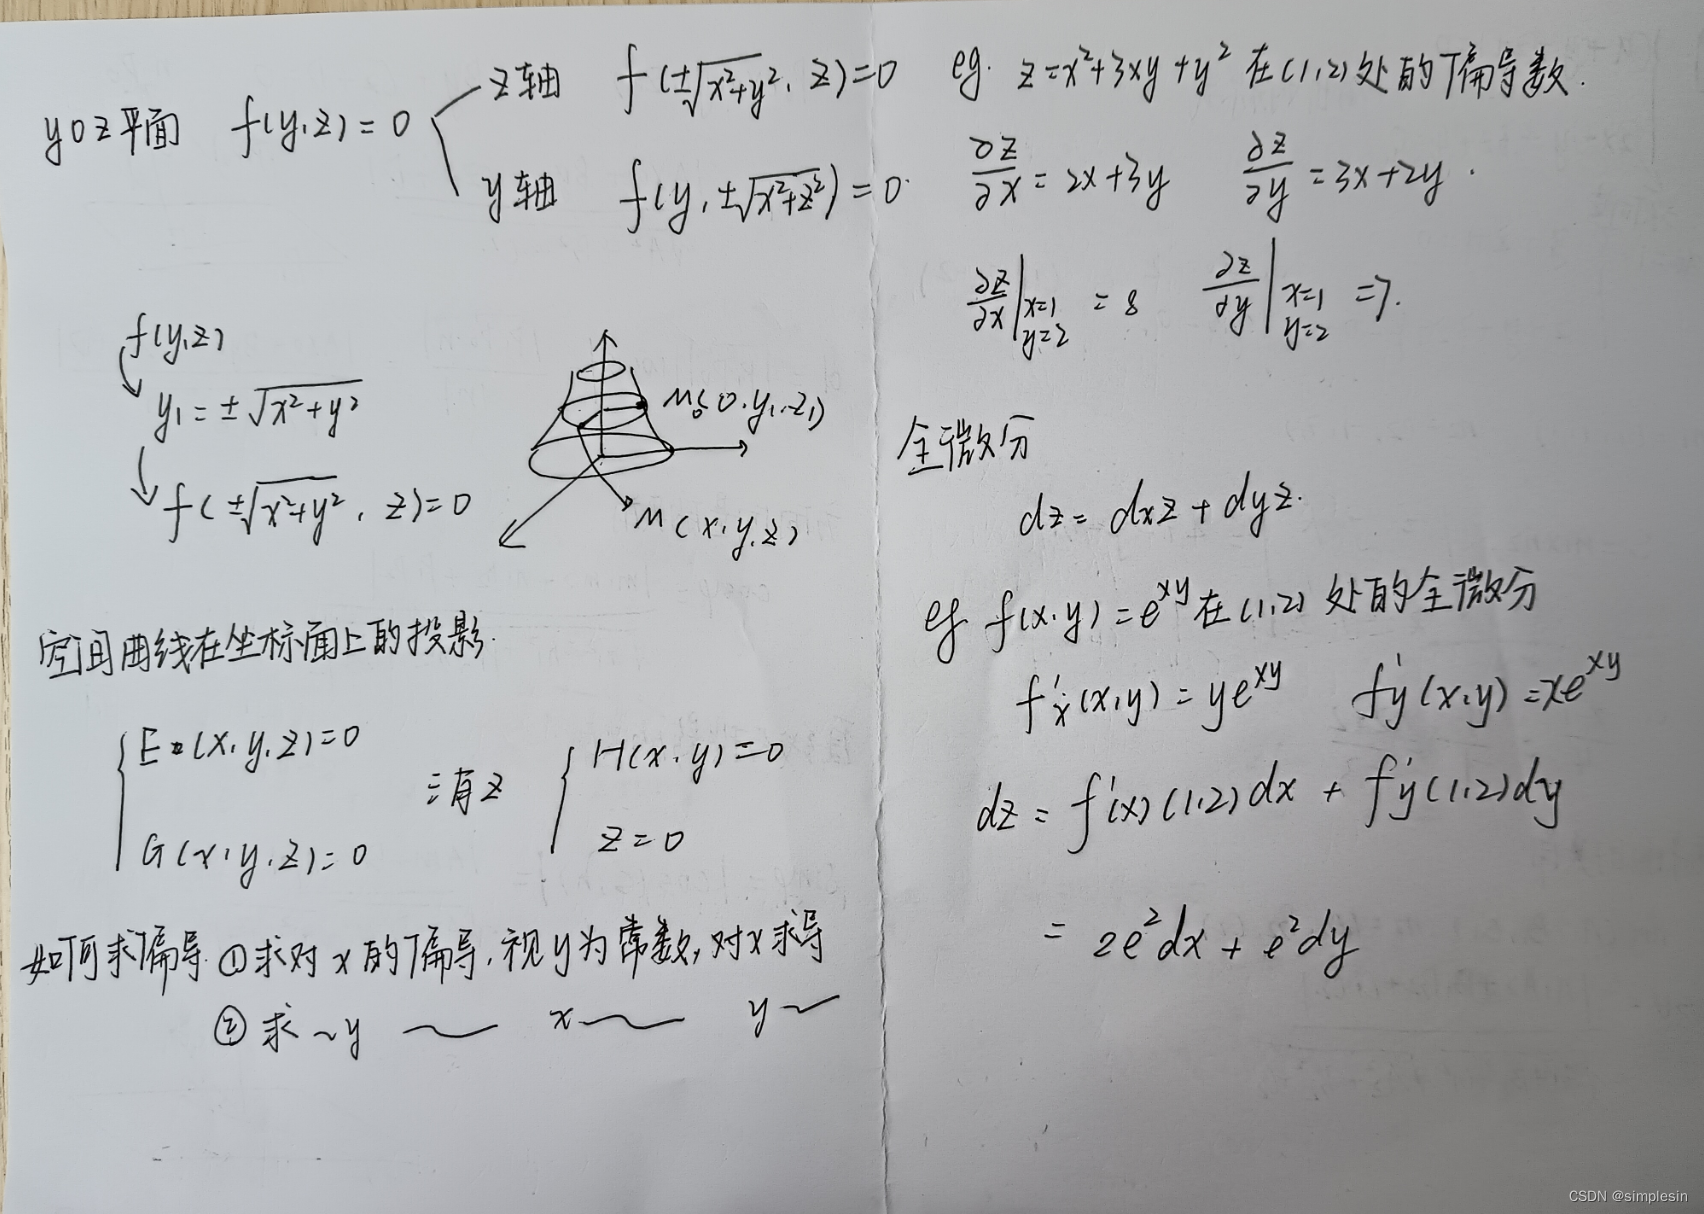 yoz平面 f(y,z)=0
z轴 f(±√x²+y², z)=0
y轴 f(y,±√x²+z²)=0
f(y,z)
y₁=±√x²+y²
f(±√x²+y², z)=0
M₀(0,y₁,z₁)
M(x,y,z)
空间曲线在坐标面上的投影.
E(x,y,z)=0
G(x,y,z)=0
消z
H(x,y)=0
z=0
如何求偏导 ①求对x的偏导,视y为常数,对x求导
②求~y ~ x~ y~
eg. z=x²+3xy+y² 在(1,2)处的偏导数.
∂z/∂x=2x+3y ∂z/∂y=3x+2y.
∂z/∂x|x=1 y=2 =8 ∂z/∂y|x=1 y=2 =7.
全微分
dz=dxz+dyz.
eg f(x,y)=e^xy在(1,2)处的全微分
f'x(x,y)=ye^xy f'y(x,y)=xe^xy
dz=f'(x)(1,2)dx+f'y(1,2)dy
=2e²dx+e²dy
CSDN @simplesin